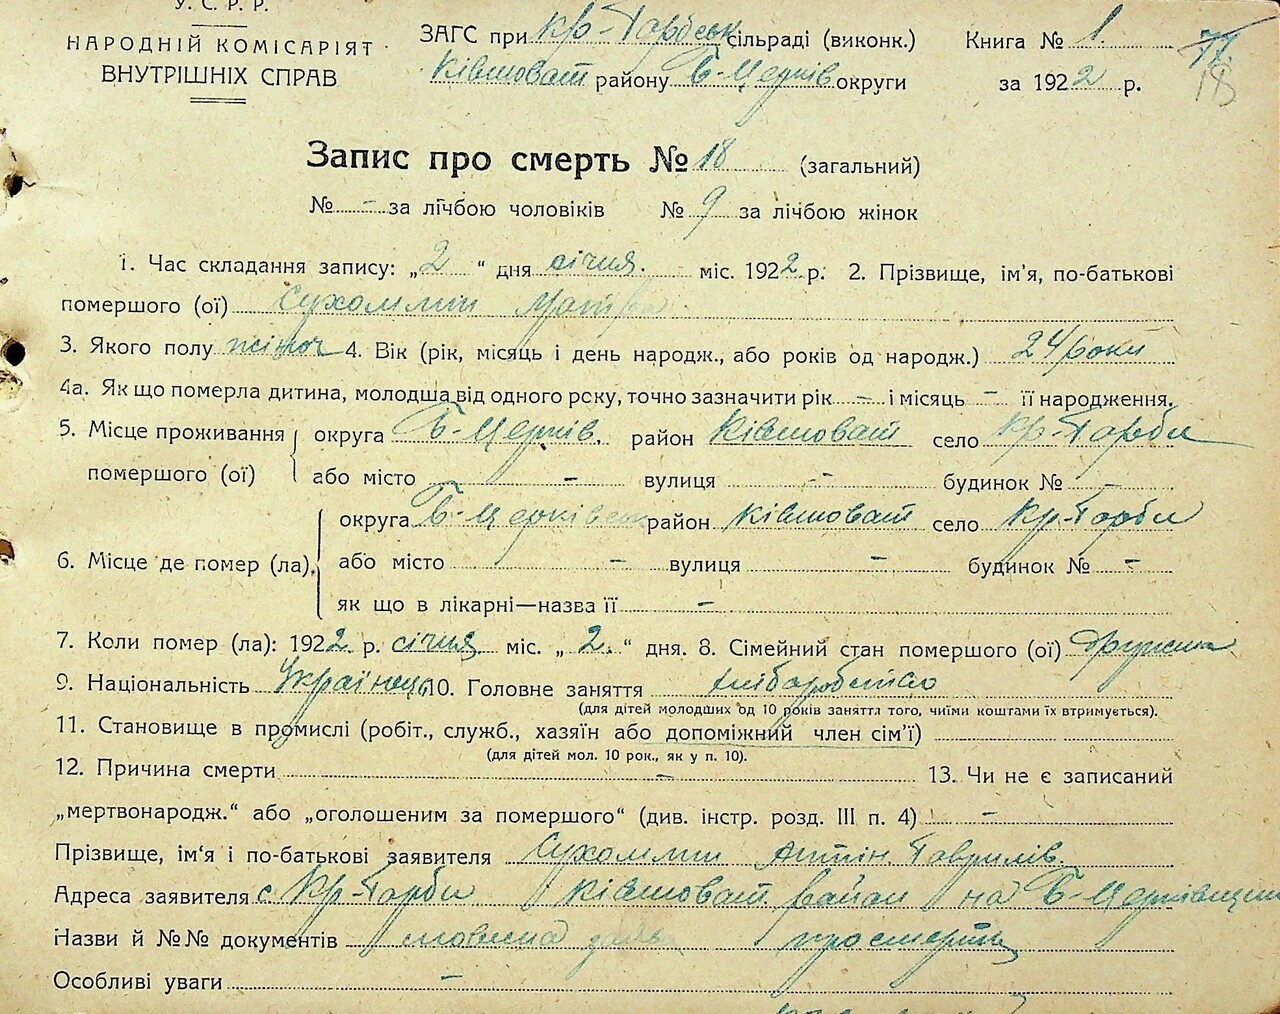 У.С.Р.Р.
НАРОДНІЙ КОМІСАРІЯТ
ВНУТРІШНІХ СПРАВ
ЗАГС при Кр-Горбськ сільраді (виконк.)
Ківшоват району Б-Церків округи
Книга № 1.
за 1922 р.
77
18
Запис про смерть № 18 (загальний)
№ - за лічбою чоловіків № 9 за лічбою жінок
1. Час складання запису: „2“ дня січня. міс. 1922 р. 2. Прізвище, ім'я, по-батькові
помершого (ої) Сухомлин
3. Якого полу жіноч 4. Вік (рік, місяць і день народж., або років од народж.) 24 роки
4а. Як що померла дитина, молодша від одного року, точно зазначити рік - і місяць - її народження.
5. Місце проживання помершого (ої) округа Б-Церків. район Ківшоват село Кр-Горби
або місто - вулиця - будинок № -
6. Місце де помер (ла) округа Б-Церківськ район Ківшоват село Кр-Горби
або місто - вулиця - будинок № -
як що в лікарні—назва її -
7. Коли помер (ла): 1922 р. січня міс. „2.“ дня. 8. Сімейний стан помершого (ої) дружина
9. Національність Українець 10. Головне заняття хліборобство
(для дітей молодших од 10 років заняття того, чиїми коштами їх втримується).
11. Становище в промислі (робіт., служб., хазяїн або допоміжний член сім'ї)
(для дітей мол. 10 рок., як у п. 10).
12. Причина смерти - 13. Чи не є записаний
„мертвонародж.“ або „оголошеним за помершого“ (див. інстр. розд. III п. 4) -
Прізвище, ім'я і по-батькові заявителя Сухомлин Антін Гаврилів.
Адреса заявителя с. Кр-Горби Ківшоват. район на Б-Церківщині
Назви й №№ документів словесна про смерть
Особливі уваги -